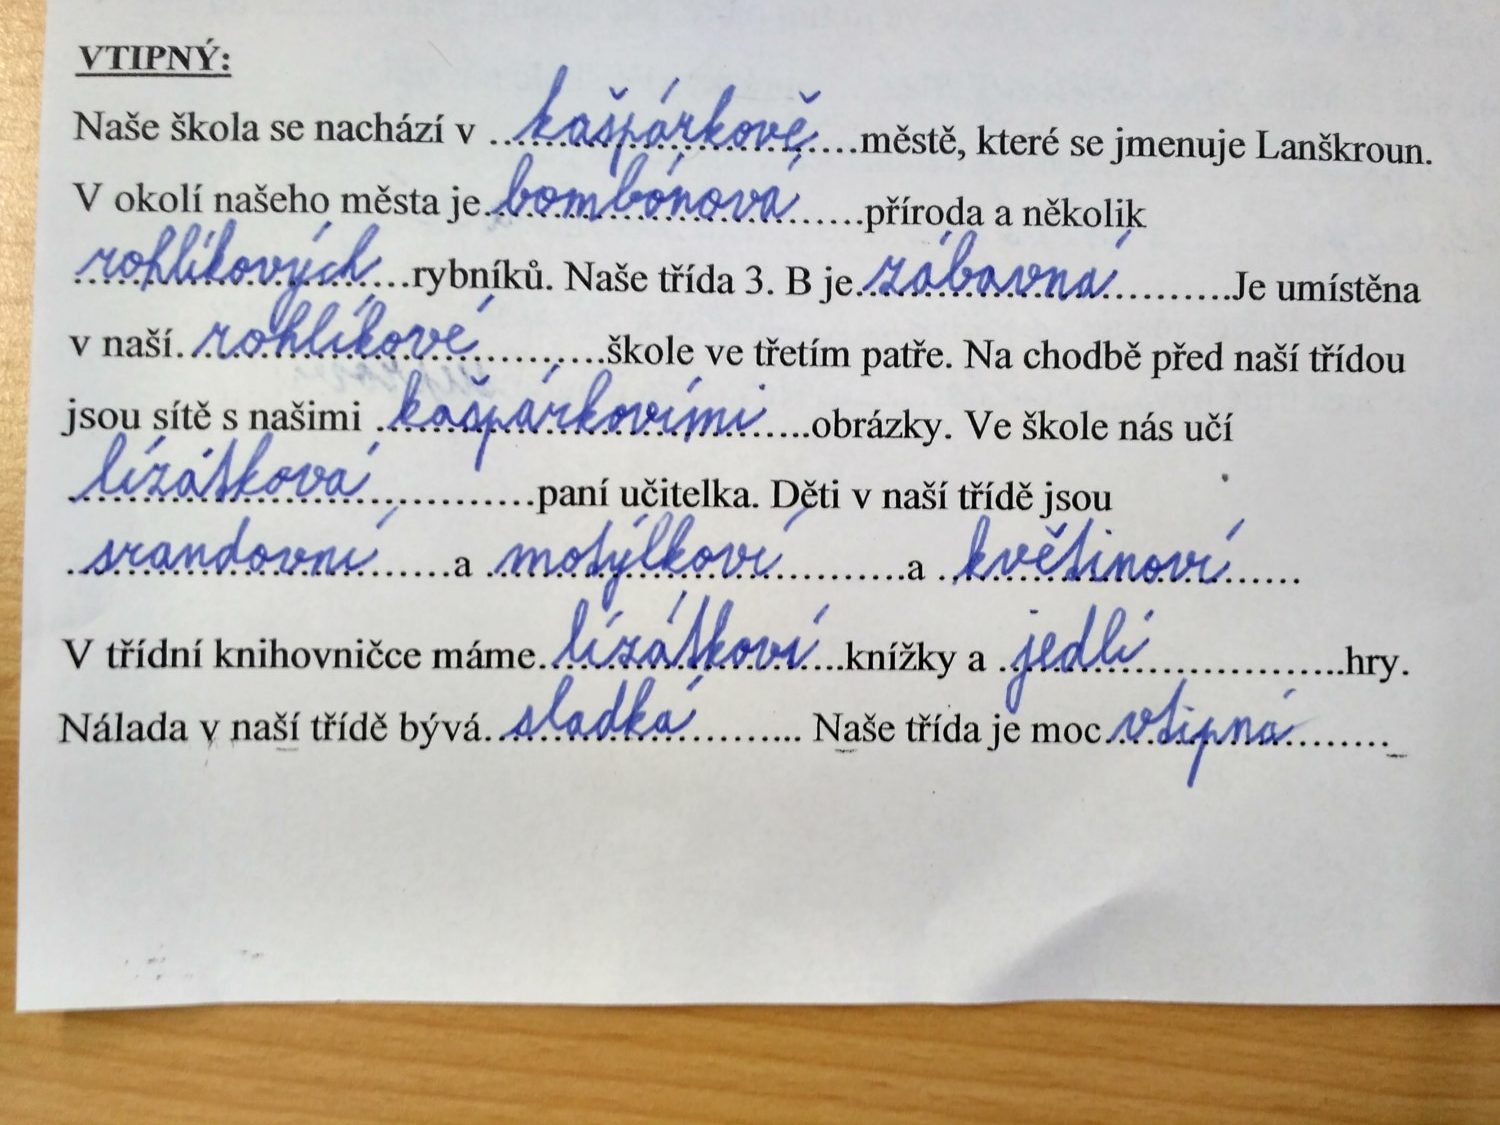 VTIPNÝ:
Naše škola se nachází v ..kašpárkově...městě, které se jmenuje Lanškroun.
V okolí našeho města je..bombónová......příroda a několik
..rohlíkových...rybníků. Naše třída 3. B je..zábavná..........Je umístěna
v naší..rohlíkové..........škole ve třetím patře. Na chodbě před naší třídou
jsou sítě s našimi ..kašpárkovími.....obrázky. Ve škole nás učí
..lízátková..............paní učitelka. Děti v naší třídě jsou
..srandovní......a ..motýlkoví..........a ..květinoví......
V třídní knihovničce máme..lízátkoví...knížky a ..jedlí...............hry.
Nálada v naší třídě bývá..sladká......... Naše třída je moc..vtipná........